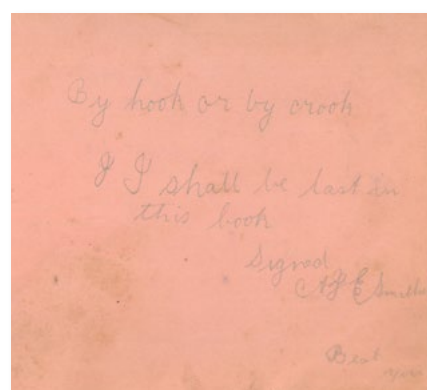 By hook or by crook
I I shall be last in
this book
Signed
Smith
Best